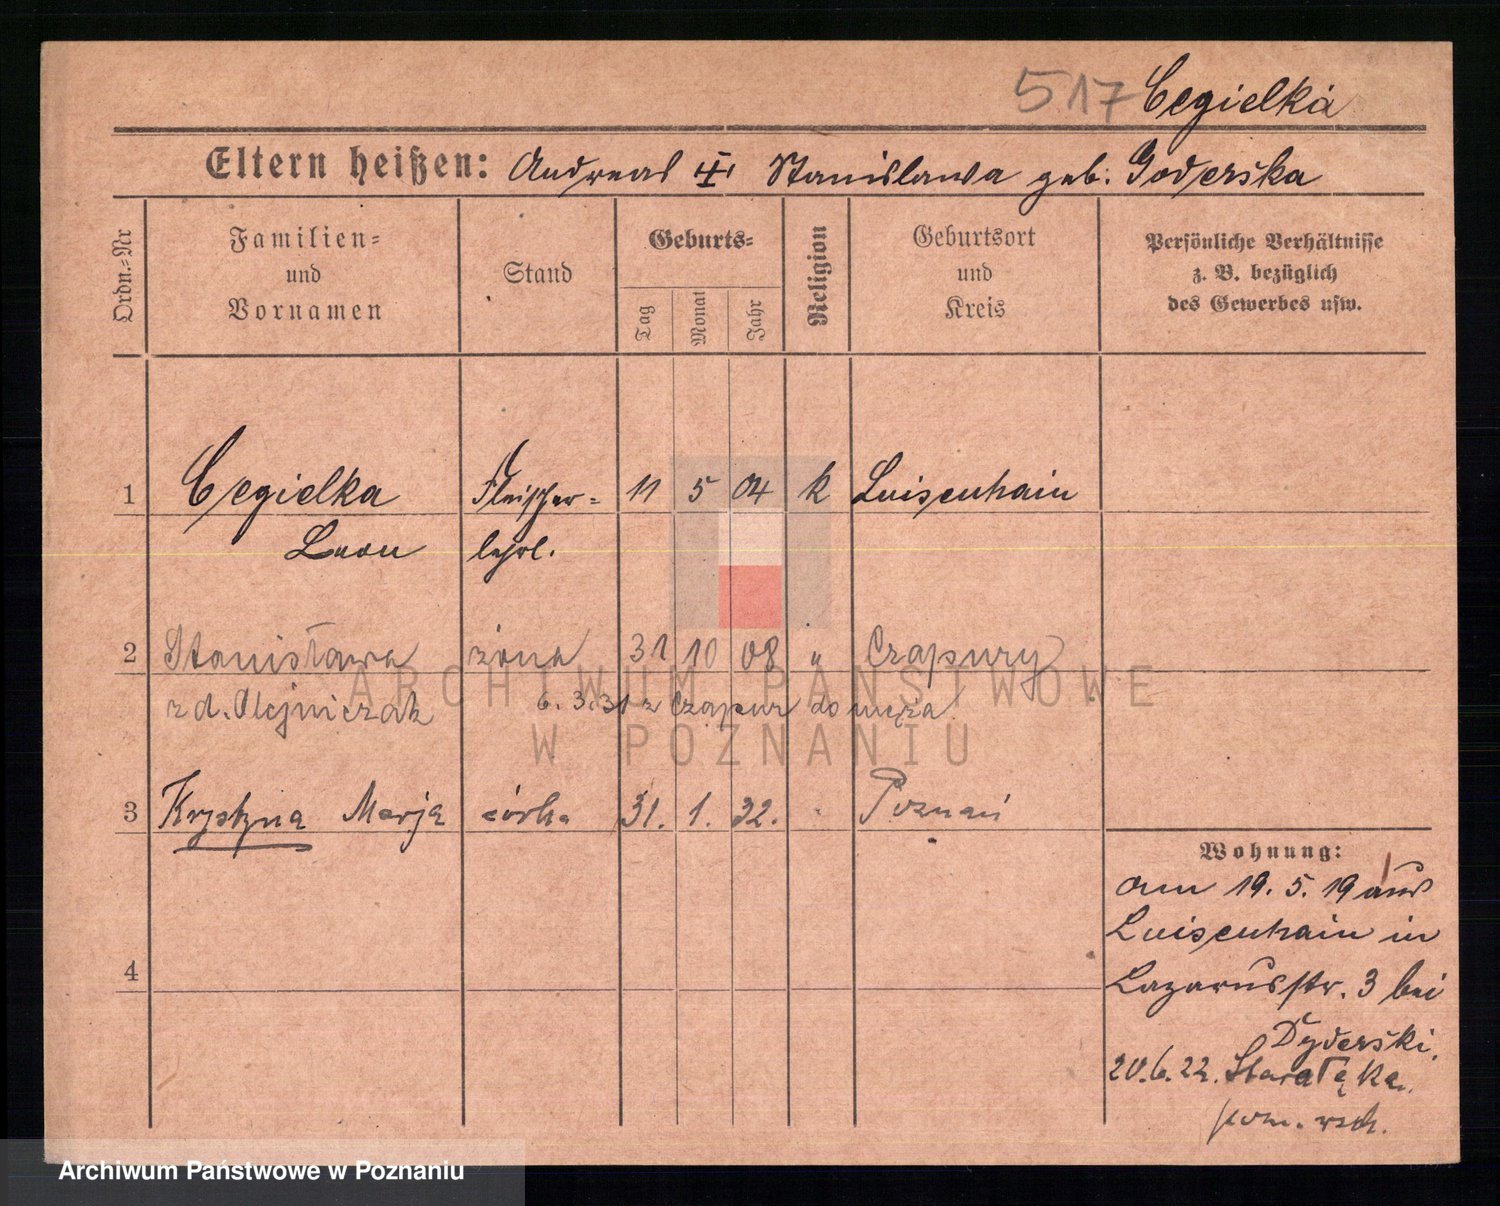 517 Cegielka
Eltern heißen: Andreas Stanislawa geb. Goderska
Ordn.-Nr
Familien-
und
Vornamen
Stand
Geburts-
Tag
Monat
Jahr
Religion
Geburtsort
und
Kreis
Persönliche Verhältnisse
z. B. bezüglich
des Gewerbes usw.
1 Cegielka Fleischer- 11 5 04 k Luisenhain
Leon lehrl.
2 Stanisława żona 31 10 08 " Czapury
z d. Olejniczak 6. 3. 31 z Czapur do męża
3 Krystyna Marja córka 31. 1. 32. " Poznań
4
Wohnung:
am 19. 5. 19 aus
Luisenhain in
Lazarusstr. 3 bei
Dyderski.
20. 6. 22. Starałęka
pow. wsch.
ARCHIWUM PAŃSTWOWE
W POZNANIU
Archiwum Państwowe w Poznaniu